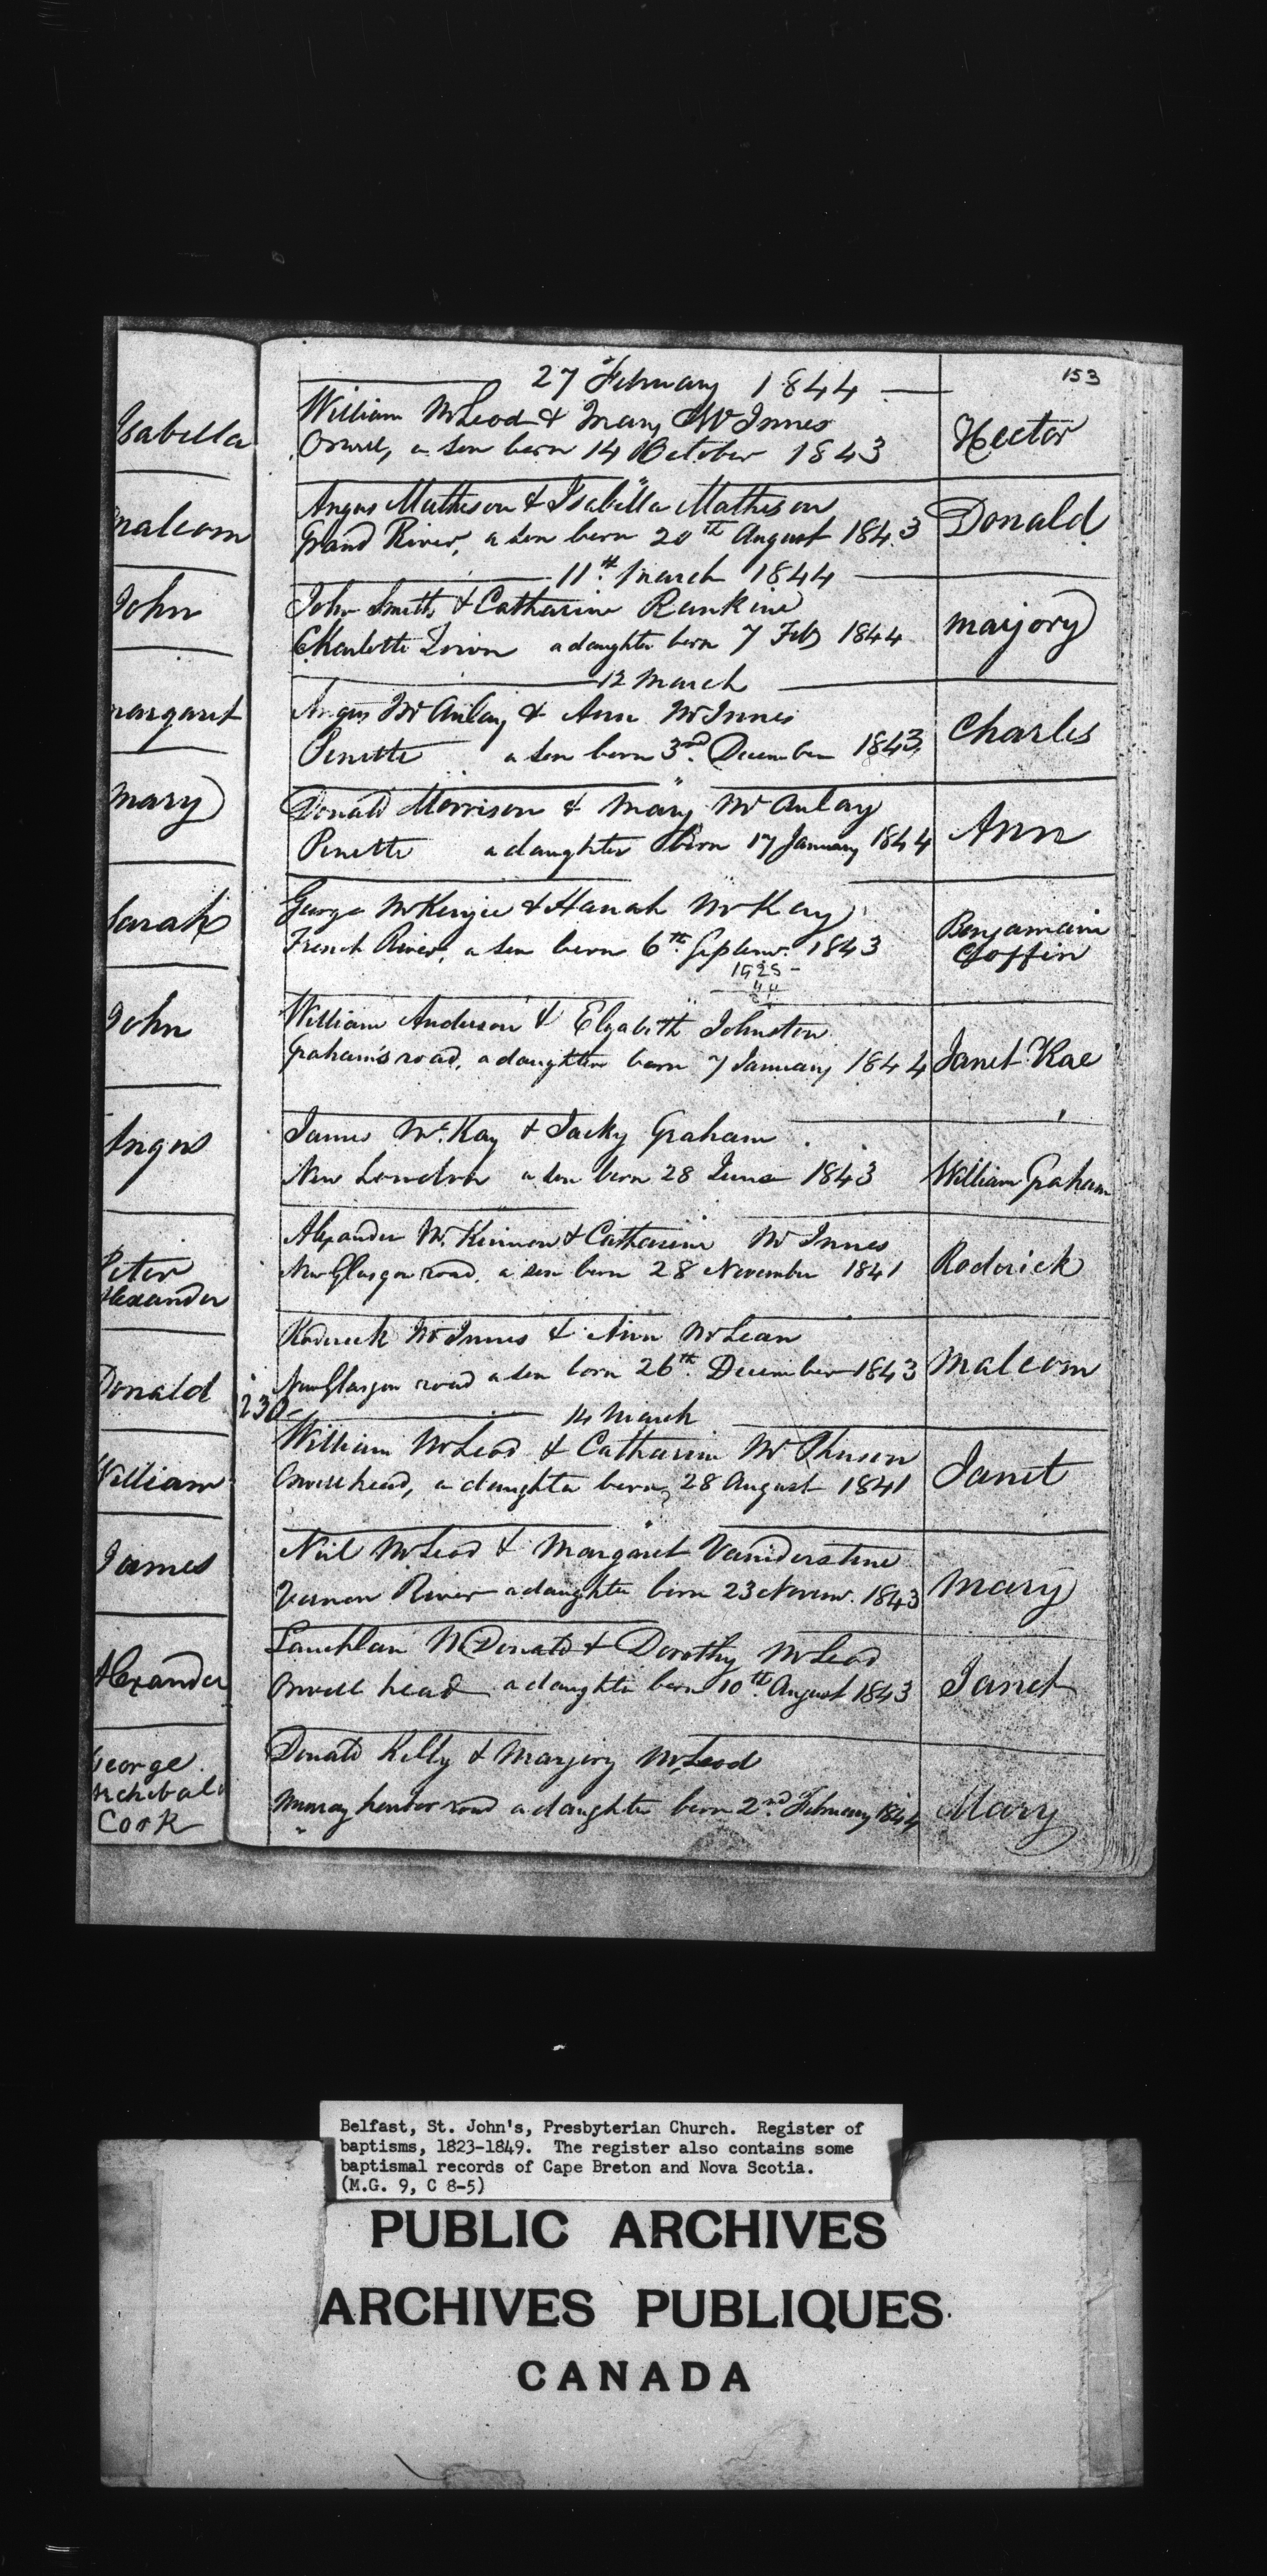 153
27 February 1844
William McLeod & Mary McInnes
Orwell, a son born 14 October 1843
Hector
Angus Matheson & Isabella Matheson
Grand River, a son born 20th August 1843
Donald
11th March 1844
John Smith & Catharine Rankine
Charlotte Town a daughter born 7 Feb 1844
Marjory
12 March
Angus McAulay & Ann McInnes
Penette a son born 3rd. December 1843
Charles
Donald Morrison & Mary McAulay
Penette a daughter born 17 January 1844
Ann
George McKenzie & Hanah McKay
French River, a son born 6th. Septemr. 1843
Benjamain
Coffin
William Anderson & Elizabeth Johnston
Graham's road, a daughter born 7 January 1844
Janet Rae
James McKay & Jacky Graham
New London a son born 28 June 1843
William Graham
Alexander McKinnon & Catharine McInnes
New Glasgow road, a son born 28 November 1841
Roderick
Roderick McInnes & Ann McLean
New Glasgow road a son born 26th. December 1843
Malcom
230
14 March
William McLeod & Catharine McPherson
Orwell head, a daughter born 28 August 1841
Janet
Neil McLeod & Margaret Vaniderstine
Vernon River a daughter born 23 Novemr. 1843
Mary
Lauchlan McDonald & Dorothy McLeod
Orwell head a daughter born 10th August 1843
Janet
Donald Kelly & Marjory McLeod
Murray harbor road a daughter born 2nd. February 1844
Mary
Isabella
Malcom
John
Margaret
Mary
Sarah
John
Angus
Peter
Alexander
Donald
William
James
Alexander
George
Archibald
Cook
Belfast, St. John's, Presbyterian Church. Register of
baptisms, 1823-1849. The register also contains some
baptismal records of Cape Breton and Nova Scotia.
(M.G. 9, C 8-5)
PUBLIC ARCHIVES
ARCHIVES PUBLIQUES
CANADA